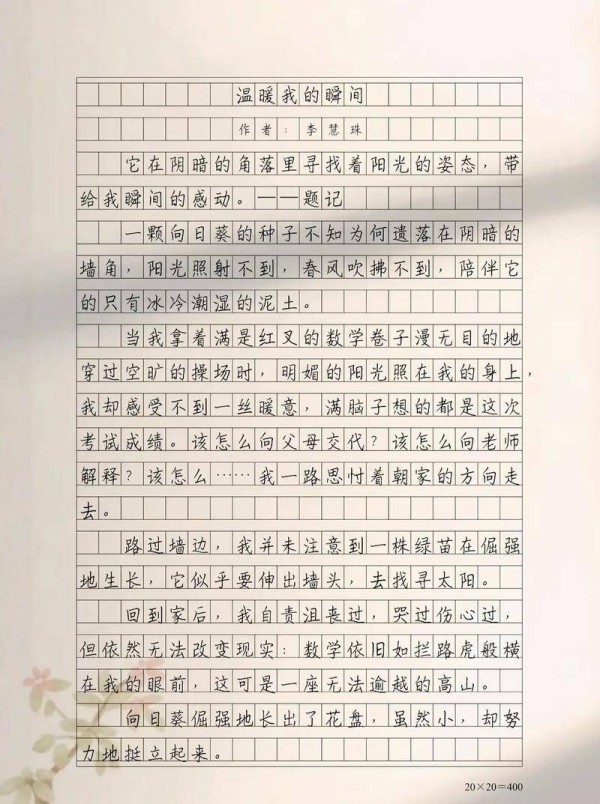 温暖我的瞬间
作者：李慧珠
它在阴暗的角落里寻找着阳光的姿态，带
给我瞬间的感动。——题记
一颗向日葵的种子不知为何遗落在阴暗的
墙角，阳光照射不到，春风吹拂不到，陪伴它
的只有冰冷潮湿的泥土。
当我拿着满是红叉的数学卷子漫无目的地
穿过空旷的操场时，明媚的阳光照在我的身上，
我却感受不到一丝暖意，满脑子想的都是这次
考试成绩。该怎么向父母交代？该怎么向老师
解释？该怎么……我一路思忖着朝家的方向走
去。
路过墙边，我并未注意到一株绿苗在倔强
地生长，它似乎要伸出墙头，去找寻太阳。
回到家后，我自责沮丧过，哭过伤心过，
但依然无法改变现实：数学依旧如拦路虎般横
在我的眼前，这可是一座无法逾越的高山。
向日葵倔强地长出了花盘，虽然小，却努
力地挺立起来。
20×20=400